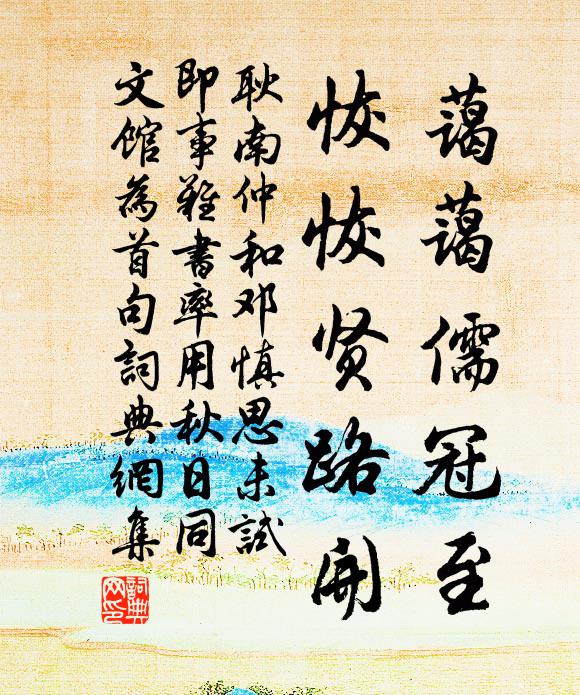 蔼蔼儒冠至
恢恢贤路開
耿南仲和邓慎思未試
即事難書率用秋日同
文館為首句詞典網集
詞典网印